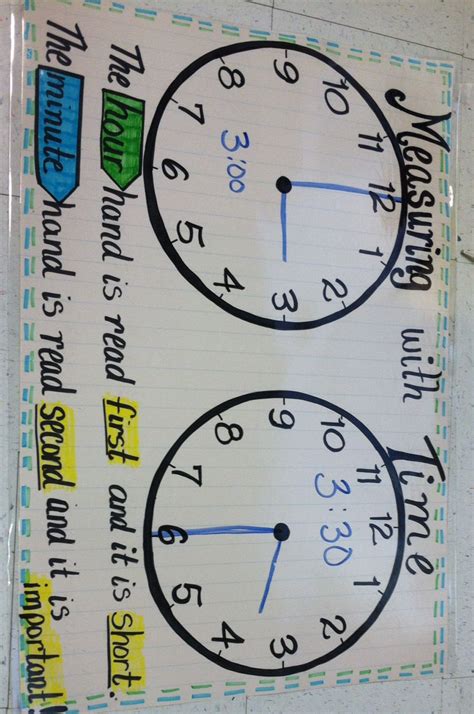 Measuring with Time
11 12 1
10 2
9 3
8 4
7 6 5
3:00
11 12 1
10 2
9 3
8 4
7 6 5
3:30
The hour hand is read first and it is short!
The minute hand is read second and it is
important!